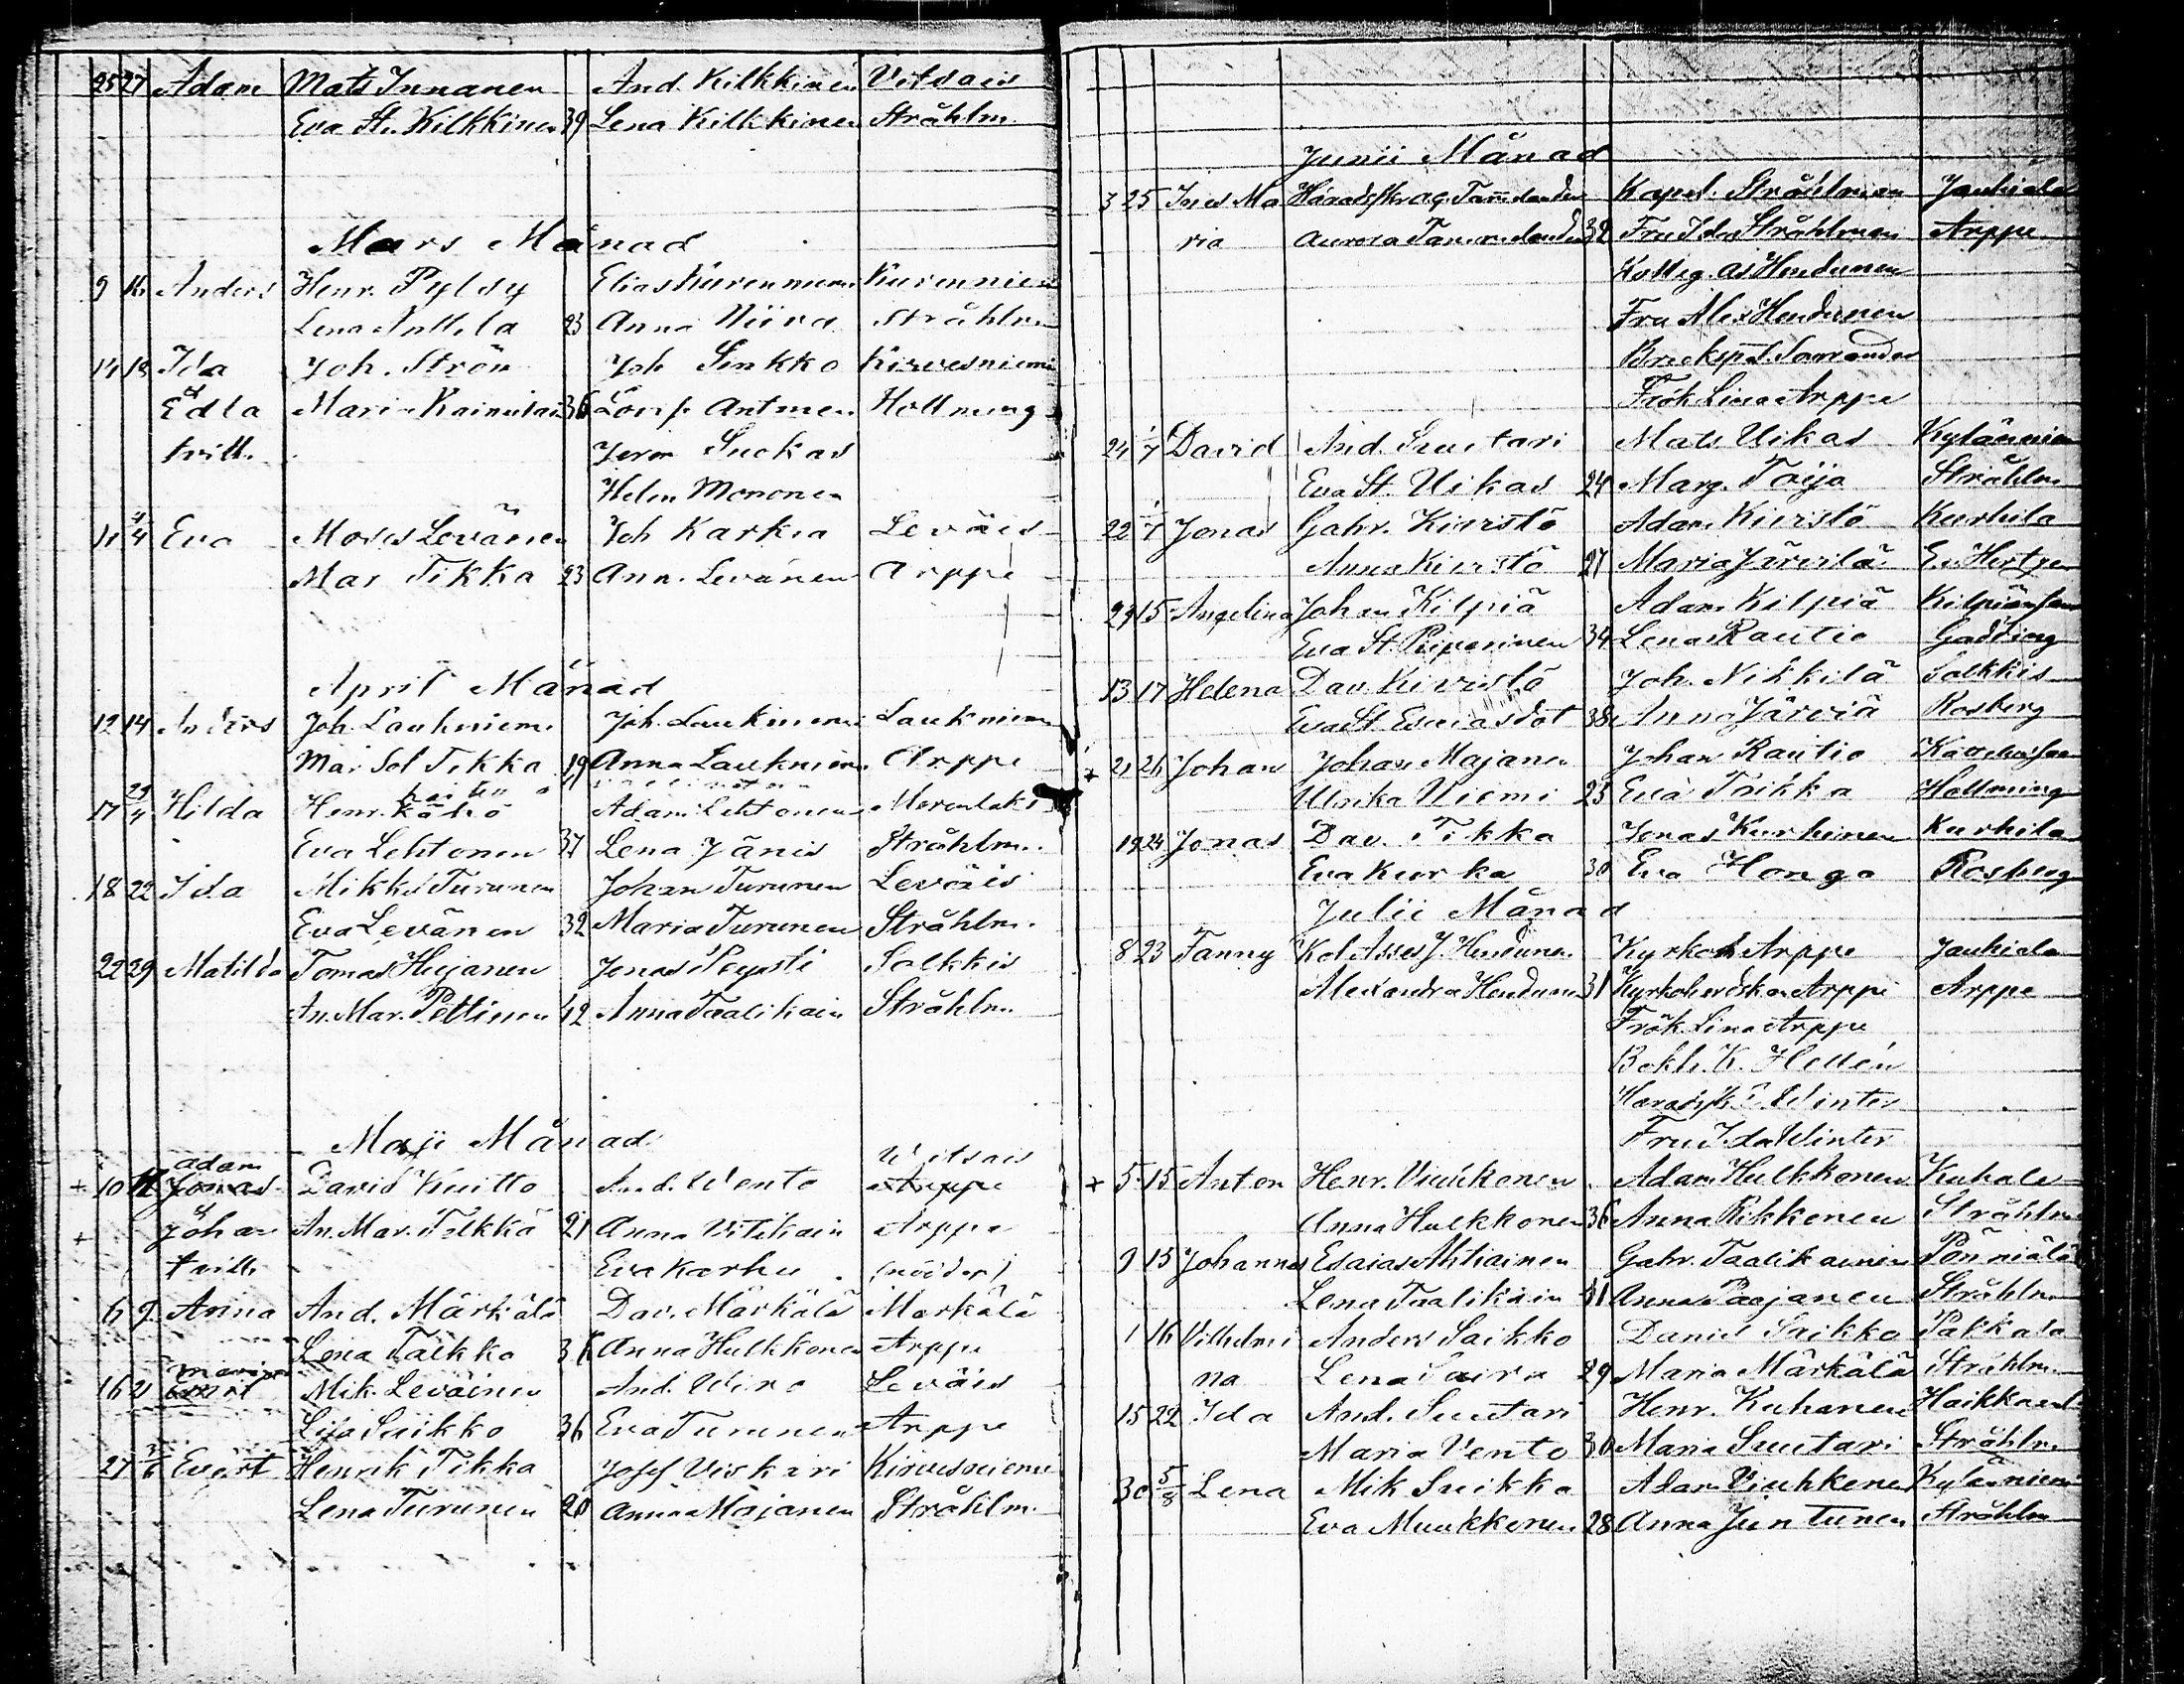 25 27 Adam Mats Innanen And. Kilkkinen Vitsais
Eva St. Kilkkinen 39 Lena Kilkkinen Stråhlm.
Mars Månad
9 16 Anders Henr. Pylsy Elias Kurennieme Kurennien
Lena Anttila 23 Anna Niira Stråhlm
14 18 Ida Joh. Ström Joh Sinkko Kirvesniemi
& Edla Maria Kainulai 36 Antmen Hollming
tvill. Suckas
Helen Mononen
11 4/4 Eva Moses Leväinen Joh Karkia Leväis
Mar Tikka 23 Ann. Levänen Arppe
April Månad
12 14 Anders Joh. Laukniem. Joh. Laukniemi Laukniem
Mar Sol Tikka 19 Anna Laukniem Arppe
17 29/4 Hilda Henr. Kähö Adam Lehtonen Merenlaks
Eva Lehtonen 37 Lena Jänis Stråhlm.
18 22 Ida Mikkel Turunen Johan Turunen Leväis
Eva Levänen 32 Maria Turunen Stråhlm.
22 29 Matilda Tomas Hujanen Jonas Peysti Solkkis
An. Mar. Pettinen 42 Anna Taalikain Stråhlm
Maji Månad
adam Witsais
+ 10 12 Jonas David Kuitto And. Wento Arppe
+ & Johan An. Mar. Telkkä 21 Anna Vitikain Arppe
tvill. Eva Karhu
6 9 Anna And. Märkälä Dav. Märkälä Märkälä
Lena Taikka 36 Anna Hulkkonen Arppe
maria
16 21 Evert Mik. Leväinen And. Wiro Leväis
Lisa Suikko 36 Eva Turunen Arppe
27 3/6 Evert Henrik Tikka Josef Viskari Kirvesnieme
Lena Turunen 20 Anna Majanen Stråhlm.
Junii Månad
3 25 Ines Ma Häradsskr. A. G. Tammelander Kapel. Stråhlman Jauhiala
ria Aurora Tammelander 32 Fru Ida Stråhlman Arppe
Kolleg. as Hendunen
Fru Alex Hendunen
Frök Lina Arppe
24 1/7 David And. Suutari Mats Uikas Kylänniem
Eva St. Uikas 24 Marg. Toija Stråhlm
22 1/7 Jonas Gabr. Kiuristö Adam Kiuristö Kurhila
Anna Kiuristö 27 Maria Järvilä
29 15 Angelina Johan Kilpiä Adam Kilpiä Kilpiänsaa
Eva St. Piiparinen 34 Lena Rautio Gadding
13 17 Helena Dav. Kiuristö Joh. Nikkilä Solkkis
Eva St. Esaiasdot 38 Anna Järviä Rosberg
+ 21 26 Johan Johan Majanen Johan Rautio
Ulrika Niemi 23 Eva Taikka Hollming
19 24 Jonas Dav. Tikka Jonas Kurhinen Kurhila
Eva Kurka 30 Eva Honga Rosberg
Julii Månad
8 23 Fanny Kol. Asses J. Hendunen Kyrkoh Arppe Jauhiala
Alexandra Hendunen 31 Kyrkoherdskan Arppe Arppe
Frök. Lina Arppe
Bokh. K. Hellén
Winter
Fru Ida Winter
+ 5 15 Anton Henr. Vuukonen Adam Hulkkonen Kuhala
Anna Hulkkonen 36 Anna Rikkonen Stråhlm
9 15 Johannes Esaias Ahtiainen Gabr. Taalikainen Pönniälä
Lena Taalikain 31 Anna Paajanen Stråhlm
1 16 Vilhelmi Anders Saikko Daniel Saikko Pakkala
na Lena Saira 29 Maria Märkälä Stråhlm.
15 22 Ida And. Suutari Henr. Kuhanen Haikkaanl
Maria Vento 30 Maria Suutari Stråhlm
30 5/8 Lena Mik Suikka Adam Viuhkonen Kylänniem
Eva Muukkonen 28 Anna Juntunen Stråhlm